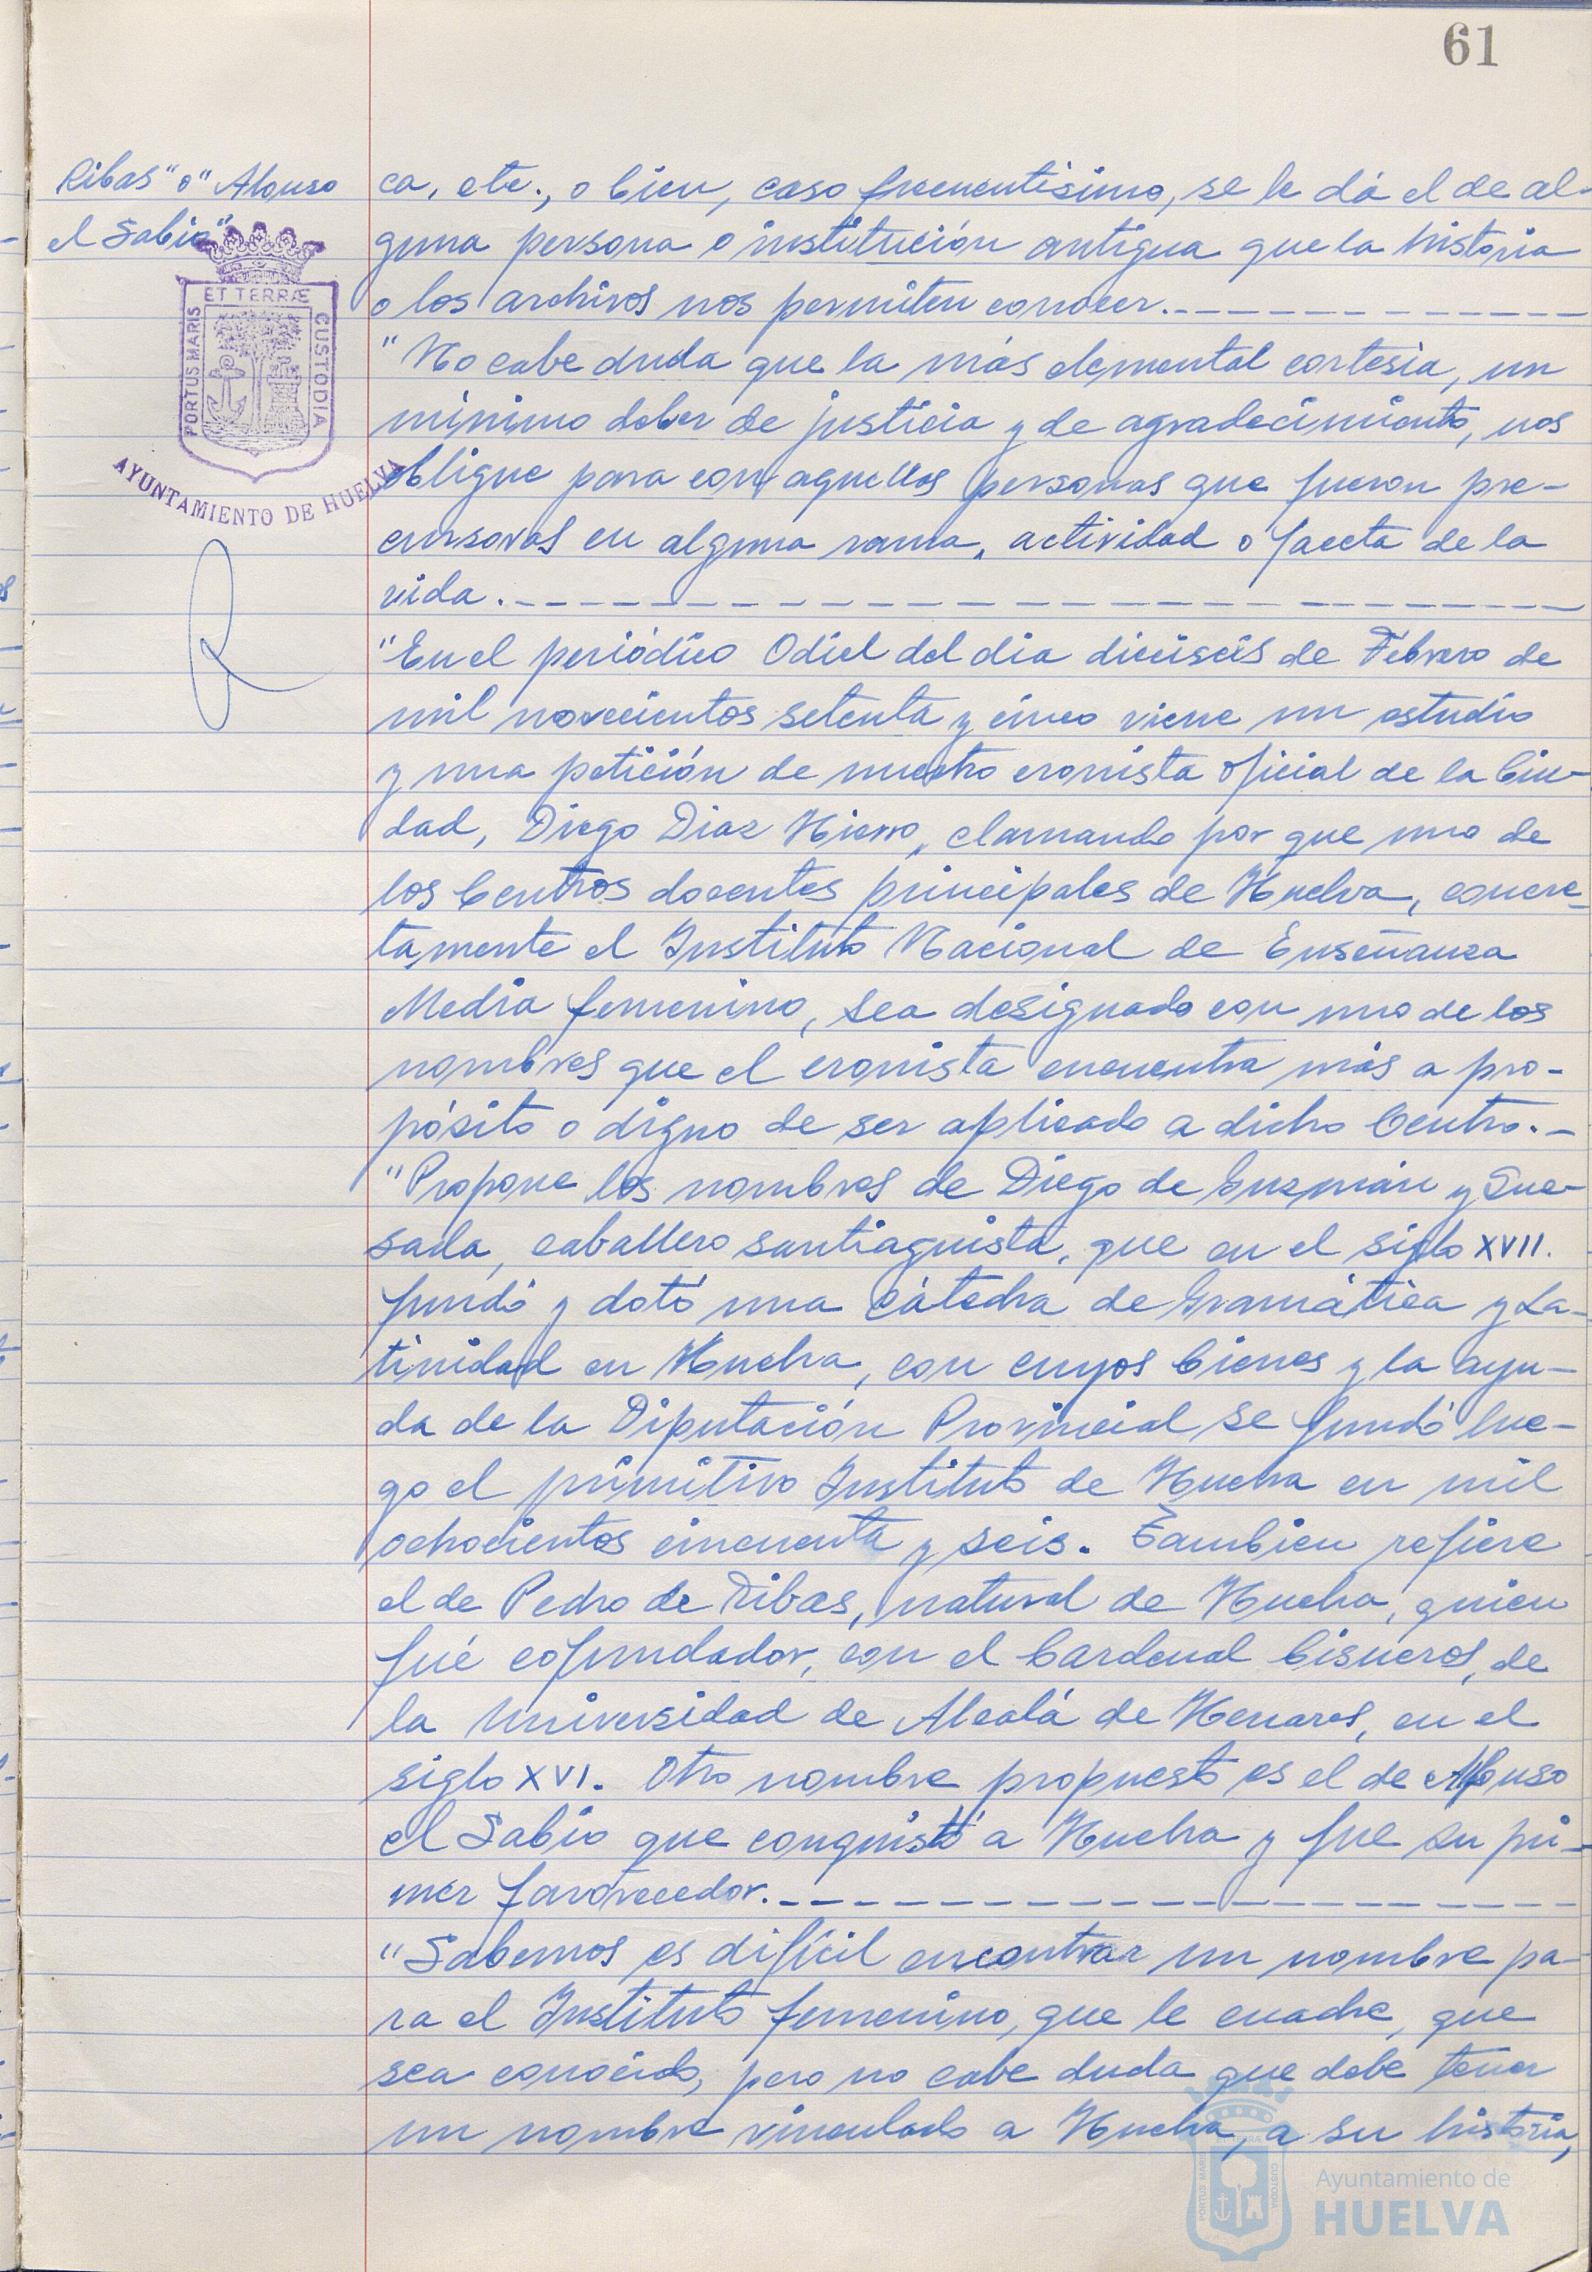 61
Ribas" o "Alonso
el Sabio"
ET TERRÆ
PORTUS MARIS
CUSTODIA
AYUNTAMIENTO DE HUELVA
ca, etc., o bien, caso frecuentísimo, se le dá el de al-
guna persona o institución antigua que la historia
o los archivos nos permiten conocer.
"No cabe duda que la más elemental cortesía, un
mínimo deber de justicia y de agradecimiento, nos
obligue para con aquellas personas que fueron pre-
cursoras en alguna rama, actividad o faceta de la
vida.
"En el periódico Odiel del dia dieciseis de Febrero de
mil novecientos setenta y cinco viene un estudio
y una petición de nuestro cronista oficial de la Ciu-
dad, Diego Diaz Hierro, clamando por que uno de
los Centros docentes principales de Huelva, concre-
tamente el Instituto Nacional de Enseñanza
Media femenino, sea designado con uno de los
nombres que el cronista encuentra más a pro-
pósito o digno de ser aplicado a dicho Centro.-
"Propone los nombres de Diego de Guzmán y Que-
sada, caballero santiaguista, que en el siglo XVII.
fundó y dotó una cátedra de Gramática y La-
tinidad en Huelva, con cuyos bienes y la ayu-
da de la Diputación Provincial se fundó lue-
go el primitivo Instituto de Huelva en mil
ochocientos cincuenta y seis. Tambien refiere
el de Pedro de Ribas, natural de Huelva, quien
fué cofundador, con el Cardenal Cisneros, de
la Universidad de Alcalá de Henares, en el
siglo XVI. Otro nombre propuesto es el de Alfonso
el Sabio que conquistó a Huelva y fue su pri-
mer favorecedor.
"Sabemos es difícil encontrar un nombre pa-
ra el Instituto femenino, que le cuadre, que
sea conocido, pero no cabe duda que debe tener
un nombre vinculado a Huelva, a su historia,
Ayuntamiento de
HUELVA